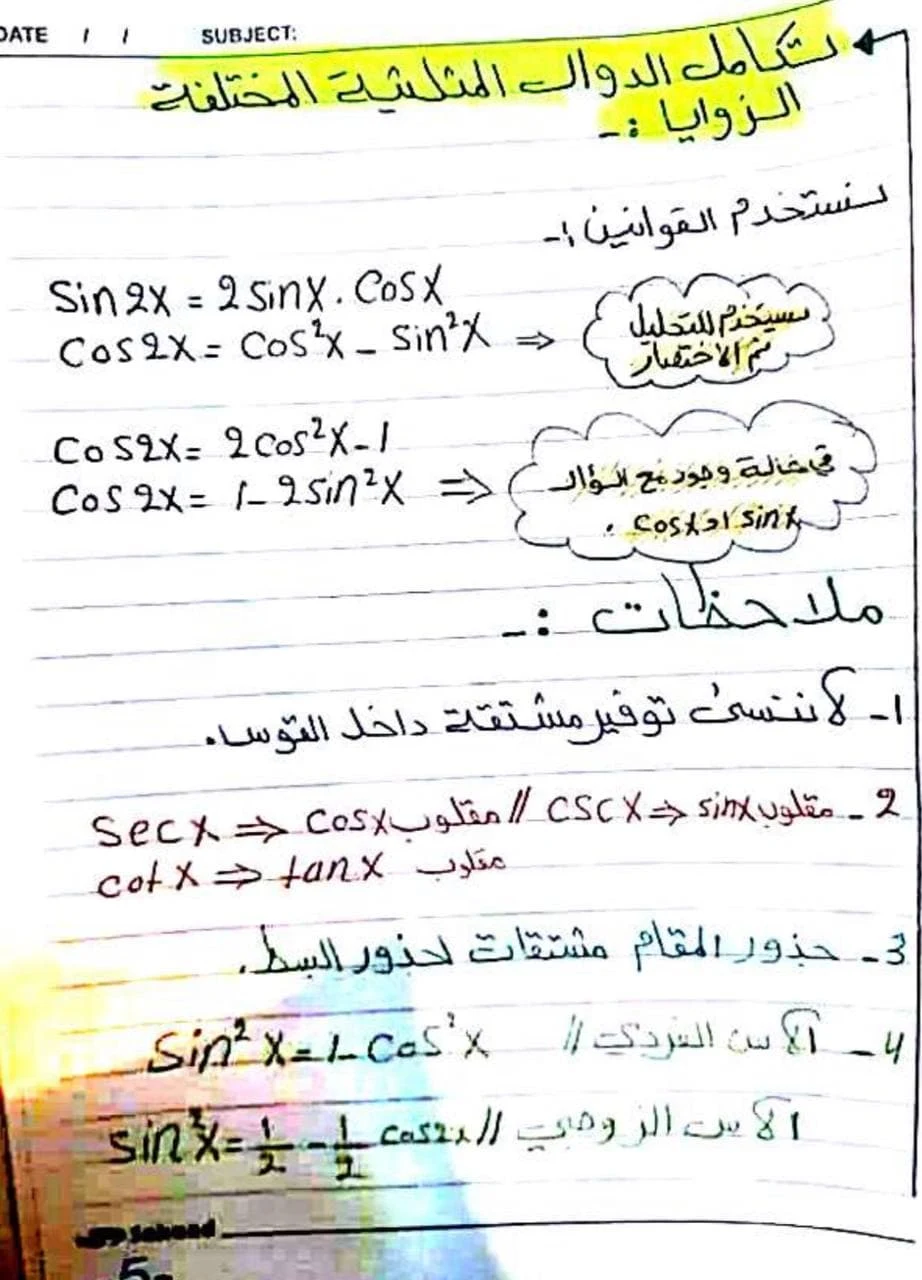 DATE / / SUBJECT:
تكامل الدوال المثلثية المختلفة
الزوايا :-
نستخدم القوانين :-
Sin2x = 2sinx . Cosx
Cos2x = Cos²x - sin²x ⇒
يستخدم للتحليل
ثم الاختصار
Cos2x = 2cos²x-1
Cos2x = 1-2sin²x ⇒
في حالة وجود مع السؤال
sinx او cosx .
ملاحظات :-
1- لا ننسى توفير مشتقة داخل القوس.
2- مقلوب sinx ⇐ cscx // مقلوب cosx ⇐ secx
cotx ⇒ tanx مقلوب
3- جذور المقام مشتقات لجذور البسط.
4- الأس الفردي // Sin²x = 1-Cos²x
الأس الزوجي // sin²x = 1/2 - 1/2 cos2x
5-